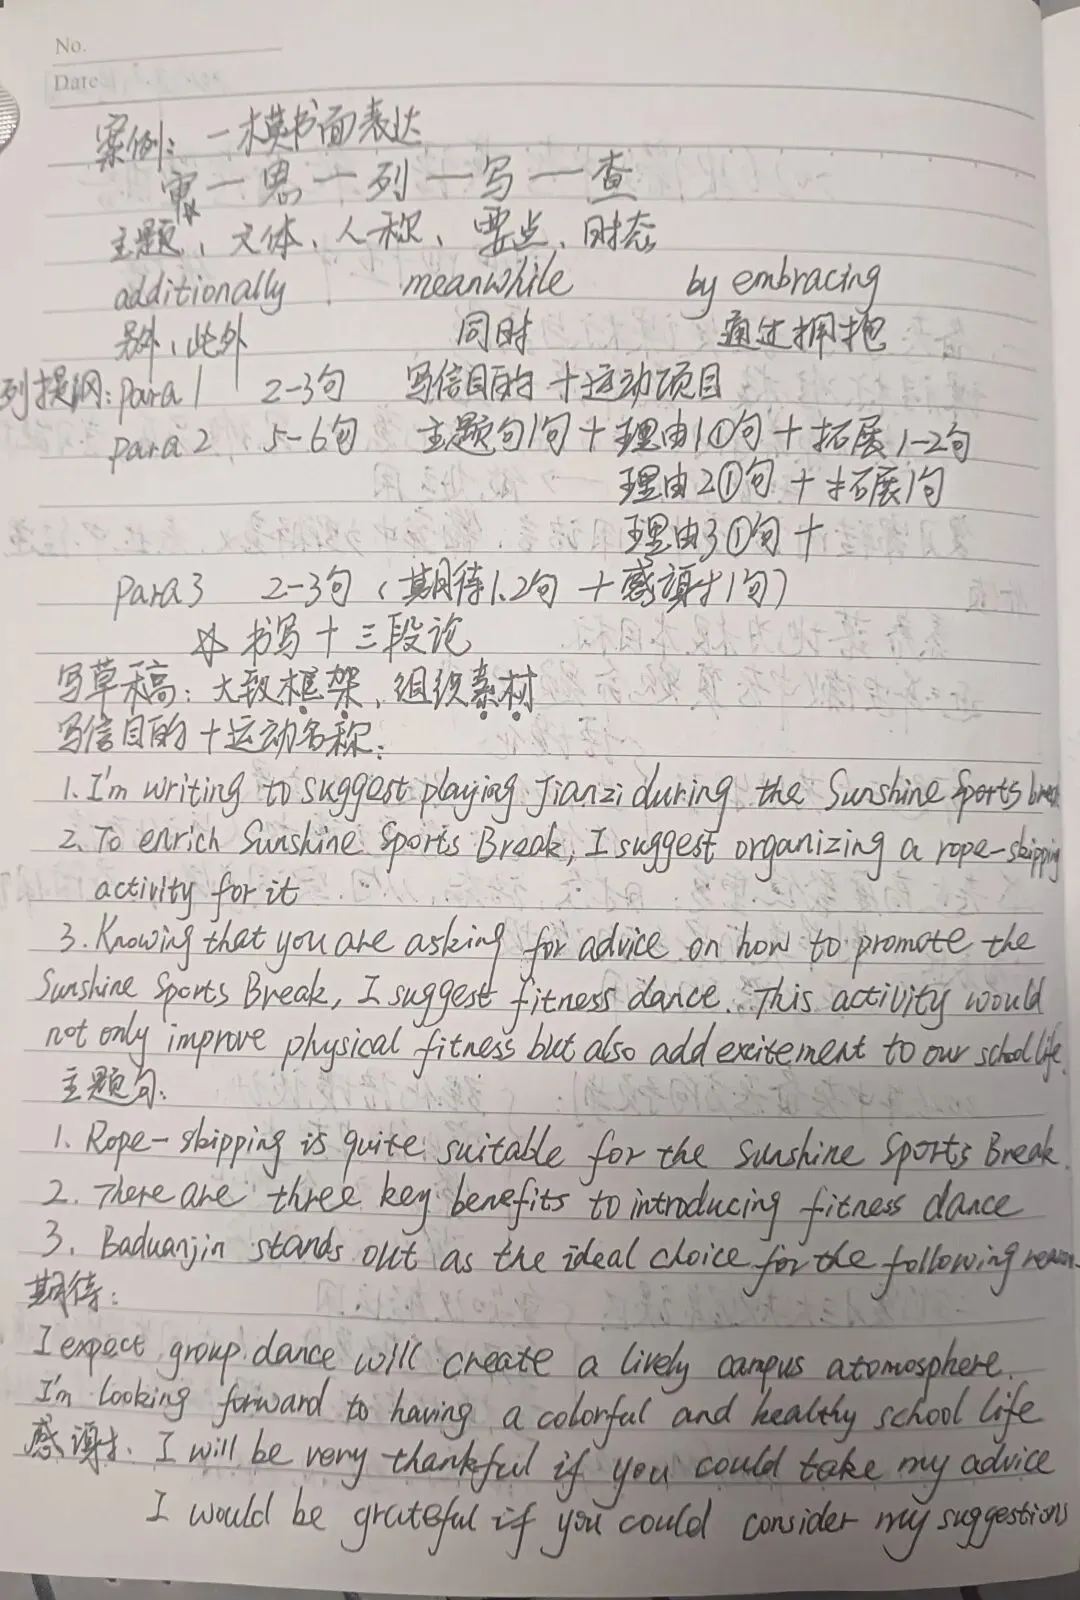 No.
Date
案例：一模书面表达
审一思一列一写一查
主题、文体、人称、要点、时态
additionally meanwhile by embracing
另外，此外 同时 通过拥抱
列提纲：para 1 2-3句 写信目的+运动项目
para 2 5-6句 主题句1句+理由1①句+拓展1-2句
理由2①句+拓展1句
理由3①句+
para 3 2-3句（期待1.2句+感谢1句）
书写+三段论
写草稿：大致框架、组织素材
写信目的+运动名称：
1. I'm writing to suggest playing Jianzi during the Sunshine Sports break
2. To enrich Sunshine Sports Break, I suggest organizing a rope-skipping
activity for it
3. Knowing that you are asking for advice on how to promote the
Sunshine Sports Break, I suggest fitness dance. This activity would
not only improve physical fitness but also add excitement to our school life.
主题句：
1. Rope-skipping is quite suitable for the Sunshine Sports Break.
2. There are three key benefits to introducing fitness dance
3. Baduanjin stands out as the ideal choice for the following
期待：
I expect group dance will create a lively campus atomosphere.
I'm looking forward to having a colorful and healthy school life
感谢. I will be very thankful if you could take my advice
I would be grateful if you could consider my suggestions